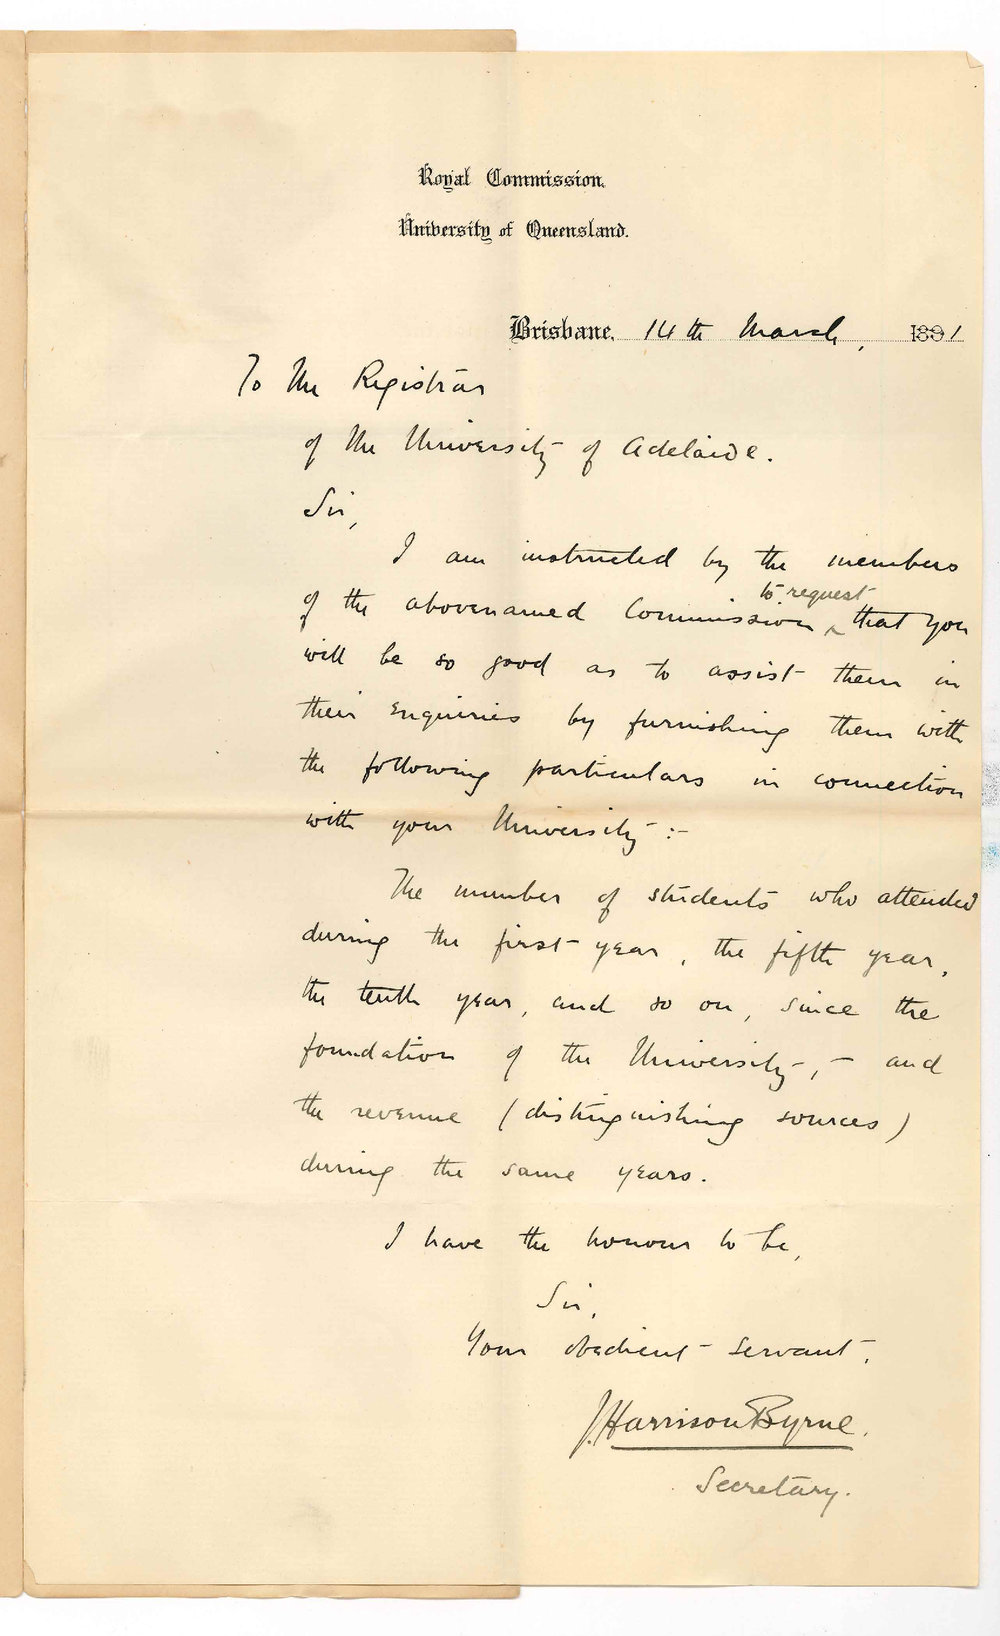 Royal Commission.
University of Queensland.
Brisbane, 14th March, 1891
To the Registrar
of the University of Adelaide.
Sir,
I am instructed by the members
of the abovenamed Commission ^to request that you
will be so good as to assist them in
their enquiries by furnishing them with
the following particulars in connection
with your University:-
The number of students who attended
during the first year, the fifth year,
the tenth year, and so on, since the
foundation of the University, - and
the revenue (distinguishing sources)
during the same years.
I have the honour to be,
Sir,
Your obedient servant,
J. Harrison Byrne.
Secretary.